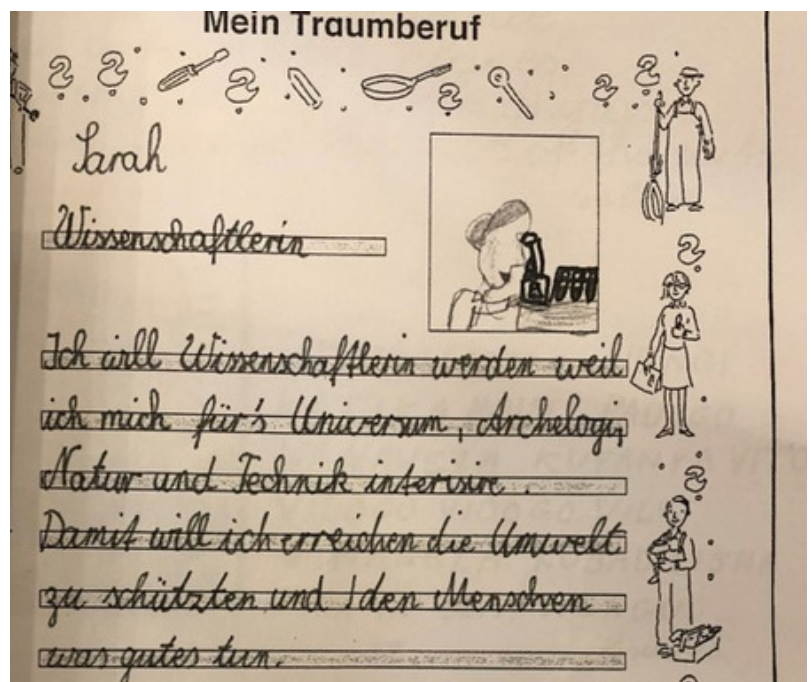 Mein Traumberuf
Sarah
Wissenschaftlerin
Ich will Wissenschaftlerin werden weil
ich mich für's Universum, Archelogi,
Natur und Technik interisire.
Damit will ich erreichen die Umwelt
zu schützten und den Menschen
was gutes tun.